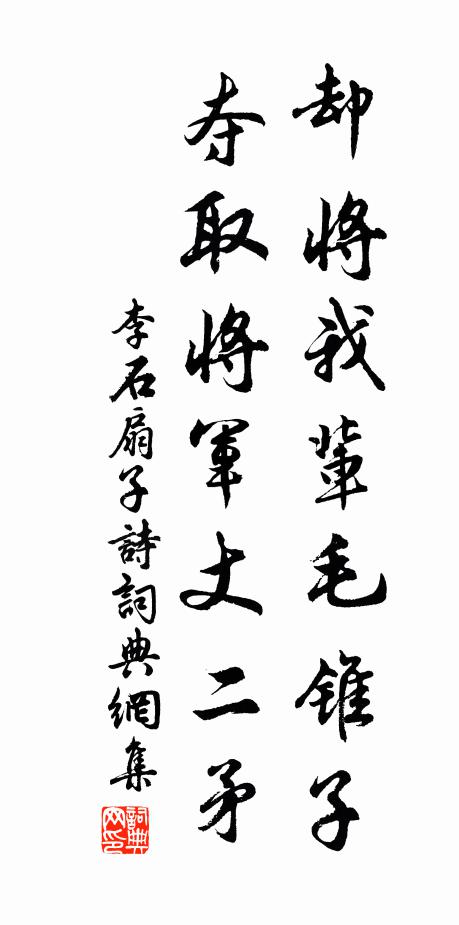 却將我輩毛錐子
夺取將軍丈二矛
李石扇子詩詞典網集
詞典网印